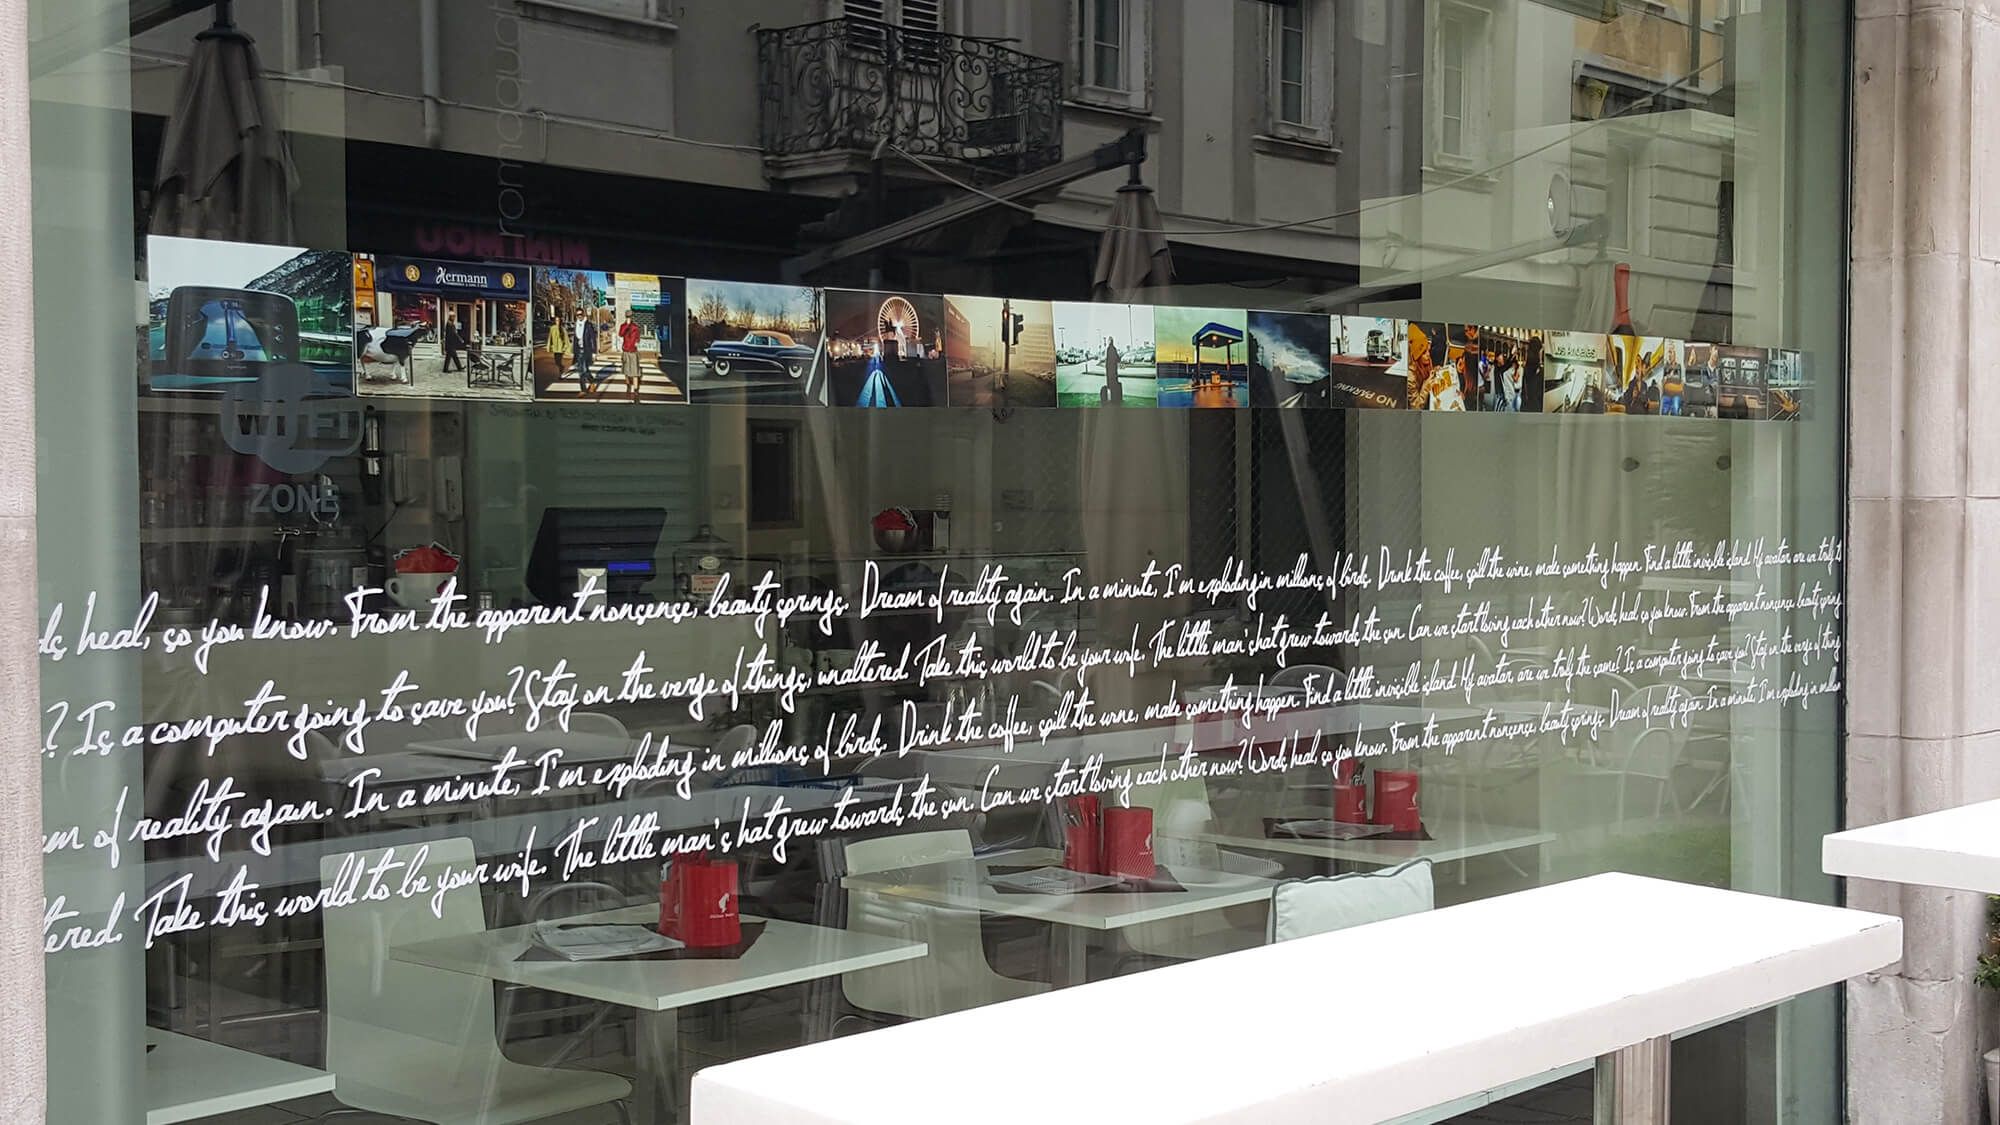 romaquat
UOMINIM
Hermann
Los Angeles
NO PARKING
WI FI
ZONE
ds heal, so you know. From the apparent nonsense, beauty springs. Dream of reality again. In a minute, I'm exploding in millions of birds. Drink the coffee, spill the wine, make something happen. Find a little invisible island. My avatar, are we truly t
? Is a computer going to save you? Stay on the verge of things, unaltered. Take this world to be your wife. The little man's hat grew towards the sun. Can we start loving each other now? Words heal, so you know. From the apparent nonsense, beauty spring
am of reality again. In a minute, I'm exploding in millions of birds. Drink the coffee, spill the wine, make something happen. Find a little invisible island. My avatar, are we truly the same? Is a computer going to save you? Stay on the verge of thing
tered. Take this world to be your wife. The little man's hat grew towards the sun. Can we start loving each other now? Words heal, so you know. From the apparent nonsense, beauty springs. Dream of reality again. In a minute, I'm exploding in million